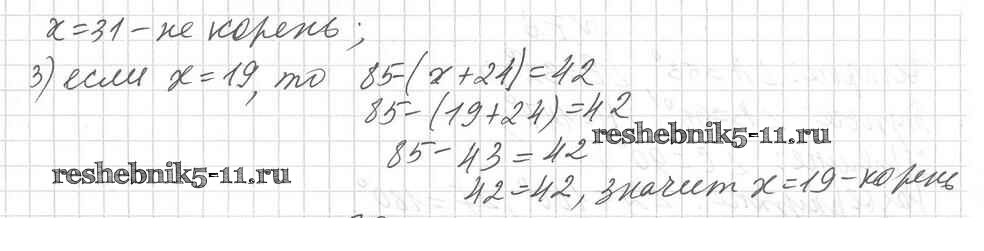 x=31 - не корень;
3) если x=19, то 85-(x+24)=42
85-(19+24)=42
reshebnik5-11.ru
85-43=42
reshebnik5-11.ru
42=42, значит x=19 - корень